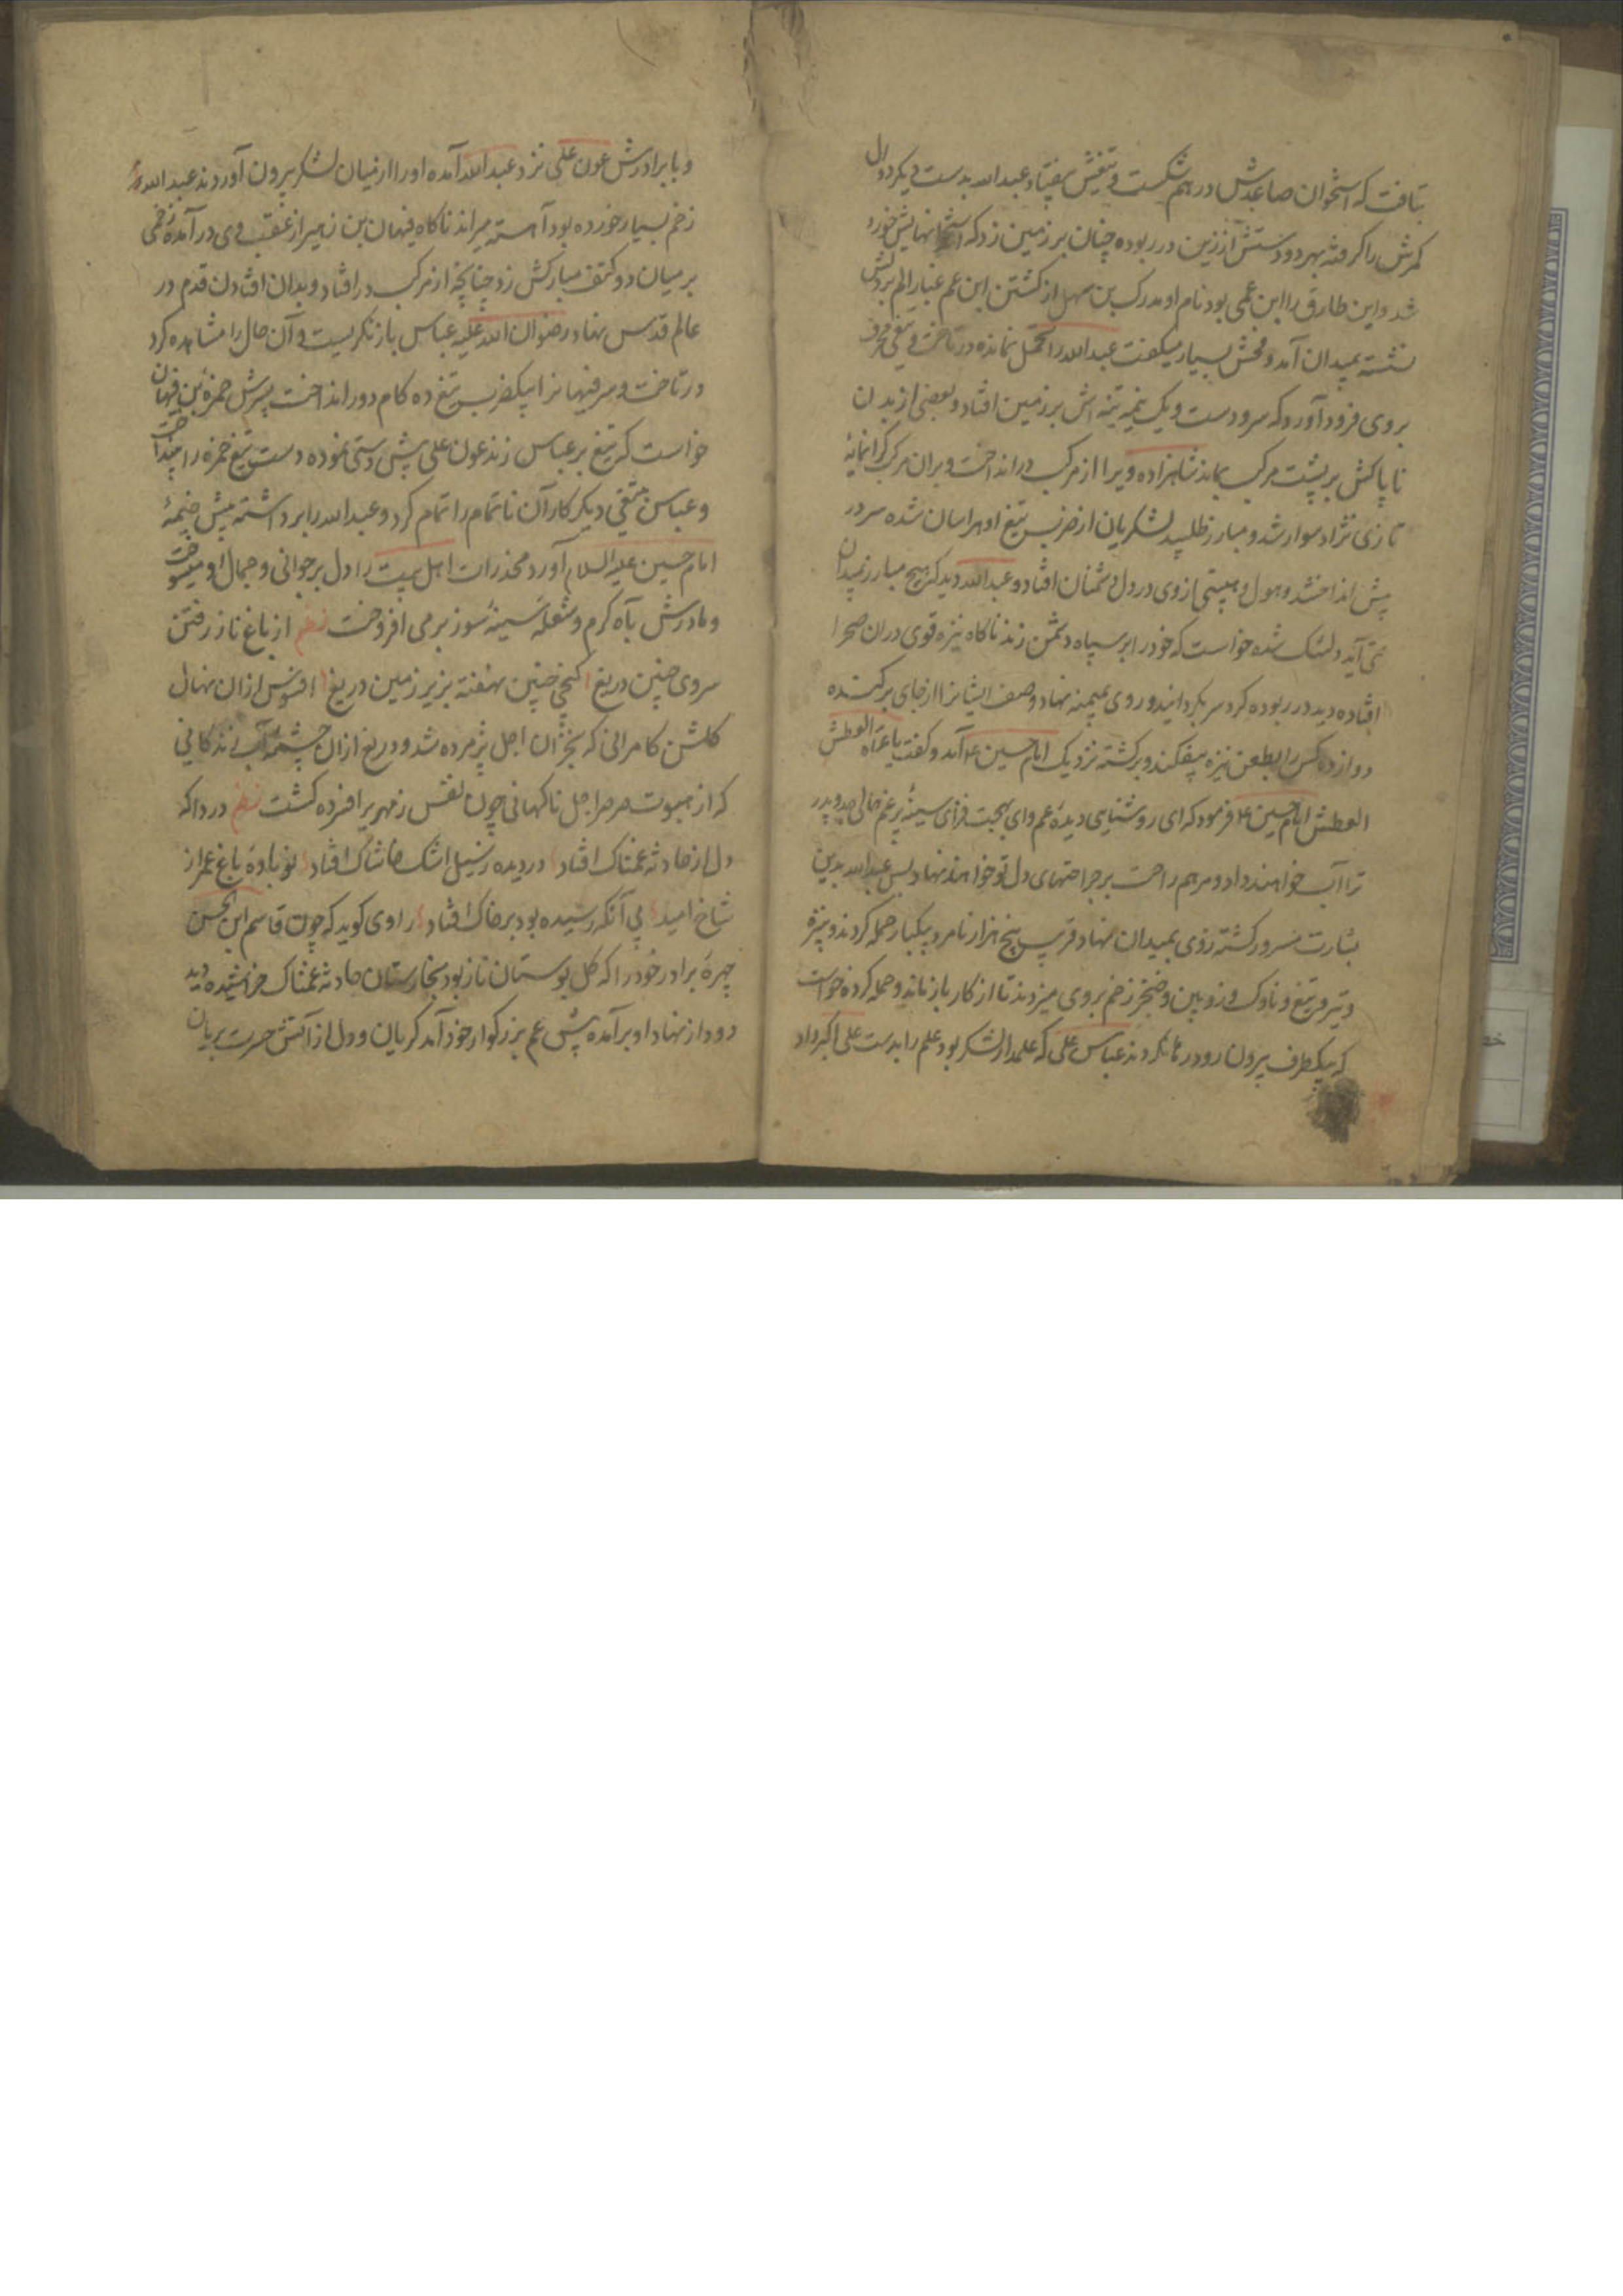 بتافت که استخوان صاعدش در هم شکست و تیغش بیفتاد عبدالله بدست دیگر دوال
کمرش را گرفته بهر دو دستش از زین در ربوده چنان بر زمین زد که استخوانهایش خورد
شد و این طارق را ابن عمی بود نام او مدرک بن سهل از کشتن ابن عم غبار الم بر دلش
نشسته بمیدان آمد و فحش بسیار میگفت عبدالله را تحمل نمانده در تاخت و تیغی محرف
بر وی فرود آورد که سر و دست و یک نیمه تنه اش بر زمین افتاد و بعضی از بدن
ناپاکش بر پشت مرکب بماند شاهزاده ویرا از مرکب در انداخت و بران مرکب گرانمایهٔ
تازی نژاد سوار شد و مبارز طلبید لشکریان از ضرب تیغ او هراسان شده سر در
پیش انداختند و هول و هیبتی از وی در دل دشمنان افتاد و عبدالله دید که هیچ مبارز بمیدان
نمی آید دلتنگ شده خواست که خود را بر سپاه دشمن زند ناگاه نیزه قوی دران صحرا
افتاده دید در ربوده گرد سر بگردانید و روی بمیمنه نهاد و صف ایشانرا از جای برکنده
دوازده کس را بطعن نیزه بیفکند و برگشته نزدیک امام حسین ع آمد و گفت یا عماه العطش
العطش امام حسین ع فرمود که ای روشنایی دیدهٔ عم و ای بهجت فزای سینهٔ پر غم حالی جد و پدر
ترا آب خواهند داد و مرهم راحت بر جراحتهای دل تو خواهند نهاد پس عبدالله بدین
بشارت مسرور گشته روی بمیدان نهاد قریب پنج هزار نامرد بیکبار حمله کردند و نیزه
و تیر و تیغ و ناوک و زوبین و خنجر زخم بر وی میزدند تا از کار باز ماند و حمله کرده خواست
که بیکطرف بیرون رود رها نکردند عباس علی که علمدار لشکر بود علم را بدست علی اکبر داد
و با برادرش عون علی نزد عبدالله آمده او را از میان لشکر بیرون آوردند عبدالله
زخم بسیار خورده بود آهسته میراند ناگاه فیهان بن زهیر از عقب وی در آمده زخمی
بر میان دو کتف مبارکش زد چنانچه از مرکب در افتاد و بدان افتادن قدم در
عالم قدس نهاد رضوان الله علیه عباس باز نگریست و آن حال را مشاهده کرد
در تاخت و سر فیهانرا بیکضرب تیغ ده گام دور انداخت پسرش حمزه بن فیهان
خواست که تیغ بر عباس زند عون علی پیش دستی نموده دست تیغ حمزه را بینداخت
و عباس بتیغی دیگر کار آن ناتمام را تمام کرد و عبدالله را برداشته پیش خیمهٔ
امام حسین علیه السلام آورد مخدرات اهل بیت را دل بر جوانی و جمال او میسوخت
و مادرش بآه گرم و شعله سینهٔ سوز بر می افروخت نظم از باغ ناز رفتن
سروی چنین دریغا گنجی چنین نهفته بزیر زمین دریغا افسوس ازان نهال
گلشن کامرانی که بخزان اجل پژمرده شد و دریغ ازان چشمه آب زندگانی
که از هبوب صرصر اجل ناگهانی چون نفس زمهریر افسرده گشت نظم دردا که
دل از حادثه غمناک افتاد در دیده ز سیل اشک خاشاک افتاد نوباوهٔ باغ عمر از
شاخ امید بی آنکه رسیده بود بر خاک افتاد راوی گوید که چون قاسم ابن الحسن
چهرهٔ برادر خود را که گل بوستان ناز بود بخارستان حادثه غمناک خراشیده دید
دود از نهاد او بر آمده پیش عم بزرگوار خود آمد گریان و دل از آتش حسرت بریان